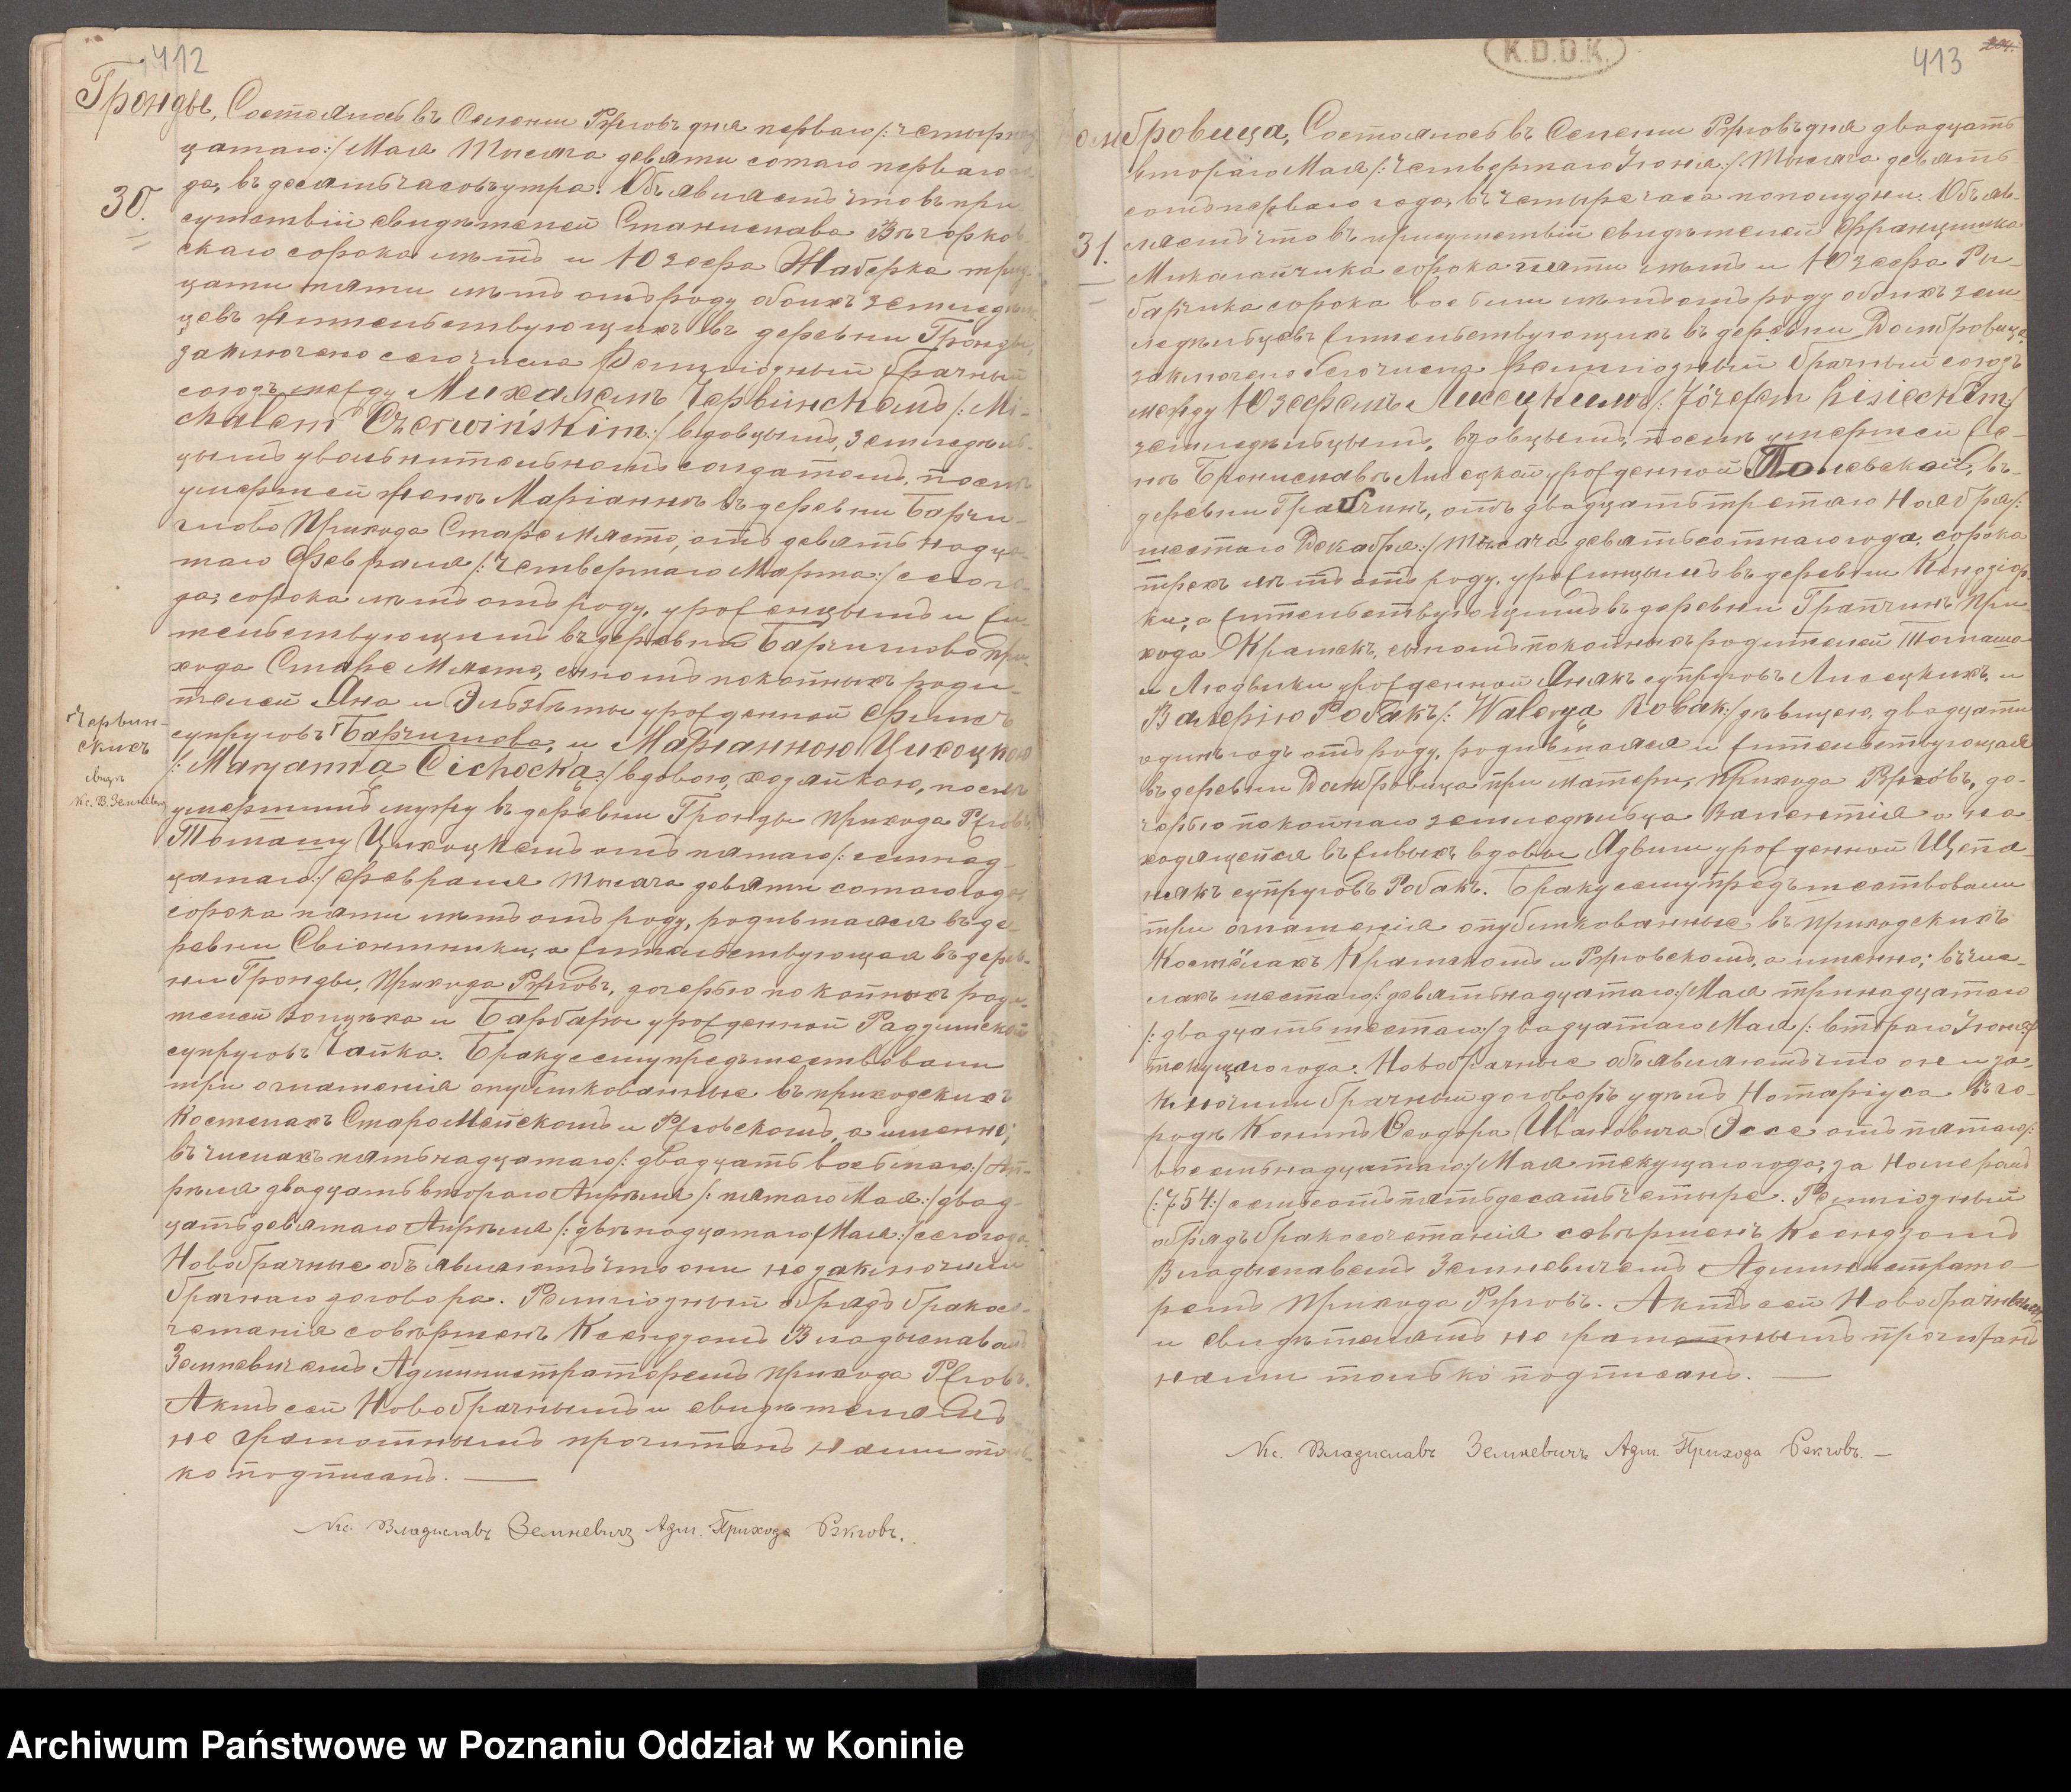 412
Гронды, Состоялось въ Селении Ржговъ дня перваго /: четырнад-
цатаго:/ Мая Тысяча девяти сотаго перваго го-
да, въ десять часовъ утра. Объявляемъ что въ при-
30.
сутствіи свидѣтелей Станислава
скаго сорока лѣтъ и Юзефа Наберка трид-
цати пяти лѣтъ отъ роду обоихъ земледѣль-
цевъ жительствующихъ въ деревни Гронды,
заключено сего числа Религіозный брачный
союзъ между Михаломъ Червинскимъ /: Mi-
chałem Czerwińskim:/ вдовцомъ, земледѣль-
цымъ увольнительномъ солдатомъ, послѣ
умершей женѣ Маріаннѣ въ деревни Барчи-
глово Прихода Старе Място, отъ девятьнадца-
таго Февраля /: Четвертаго Марта:/ сего го-
да, сорока лѣтъ отъ роду, урожденцымъ и жи-
тельствующимъ въ деревни Барчиглово При-
хода Старе Място, сыномъ покойныхъ роди-
телей Яна и Эльзбеты урожденной
Червин-
скихъ
супруговъ и Марianною Цихоцкою
/: Maryanna Cichocką:/ вдовою, хозяйкою, послѣ
Кс. В. Земневичъ
умершимъ мужу въ деревни Гронды Прихода Ржговъ
Томашу Цихоцкемъ отъ пятаго /: семнад-
цатаго:/ Февраля тысяча девяти сотаго года,
сорока пяти лѣтъ отъ роду, родившаяся въ де-
ревни Свіонтники, а жительствующая въ дерев-
ни Гронды, Прихода Ржговъ, дочерью покойныхъ роди-
телей и Барбары урожденной
супруговъ Чайка. Браку сему предшествовали
три оглашенія опубликованные въ приходскихъ
Костелахъ Старомейскомъ и Ржговскомъ, а именно;
въ числахъ пятьнадцатаго /: двадцать восьмаго:/ Ап-
рѣля двадцать втораго Апрѣля /: пятаго Мая:/ двад-
цать девятаго Апрѣля /: двѣнадцатаго Мая:/ сего года.
Новобрачные объявляютъ что они не заключили
брачнаго договора. Религіозный обрядъ бракосо-
четанія совершенъ Ксендзомъ Владыславомъ
Земневичемъ Администраторемъ прихода Ржговъ.
Актъ сей Новобрачнымъ и свидѣтелямъ
не грамотнымъ прочитанъ нами толь-
ко подписанъ. —
Кс. Владиславъ Земневичъ Адм. Прихода Ржговъ.
K.D.D.K.
413
омбровица, Состоялось въ Селении Ржговъ дня двадцать
втораго Мая /: Четвертаго Іюня:/ Тысяча девять-
сотъ перваго года, въ четыре часа пополудни. Объяв-
31.
ляемъ что въ присутствій свидѣтелей Францишка
Миколайчика сорока пяти лѣтъ и Юзефа Ры-
барчика сорока восьми лѣтъ отъ роду обоихъ зем-
ледѣльцевъ жительствующихъ въ деревни Домбровица,
заключено сего числа Религіозный брачный союзъ
между Юзефемъ Лисецкимъ /: Józefem Lisieckim:/
земледѣльцымъ, вдовцымъ, послѣ умершей же-
нѣ Брониславѣ Лиседкой урожденной въ
деревни Грабчинъ, отъ двадцать третьаго Ноября /:
шестаго Декабря:/ тысяча девятьсотнаго года, сорока
трехъ лѣтъ отъ роду, урожинцымъ въ деревни
ки, а жительствующимъ въ деревни Грапчинъ При-
хода Крамскъ, сыномъ покойныхъ родителей Томаша
и Людвики урожденной супруговъ Лисецкихъ, и
Валерію Робакъ /: Walerya Robak:/ дѣвицею, двадцати
одинъ годъ отъ роду, родившаяся и жительствующая
въ деревни Домбровица при матери, Прихода Ржговъ, до-
черью покойнаго земледѣльца Валентія а на-
ходящейся въ живыхъ вдовы Ядвиги урожденной Щепа-
някъ супруговъ Робакъ. Браку сему предшествовали
три оглашенія опубликованные въ приходскихъ
Костёлахъ Крамскомъ и Ржговскомъ, а именно; въ чис-
лахъ шестаго /: девятьнадцатаго:/ Мая тринадцатаго
/: двадцать шестаго:/ двадцатаго Мая /: втораго Іюня:/
текущаго года. Новобрачные объявляютъ что они за-
ключили брачный договоръ удѣлъ Нотаріуса въ го-
родѣ Конинъ Феодора Ивановича Эссе отъ пятаго /:
восемьнадцатаго:/ Мая текущаго года, за Номерамъ
/: 754:/ семьсотъ пятьдесать четыре. Религіозный
обрядъ бракосочетанія совершенъ Ксендзомъ
Владыславемъ Земневичемъ Администрато-
ремъ прихода Ржговъ. Актъ сей Новобрачнымъ
и свидѣтелямъ не грамотнымъ прочитанъ
нами только подписанъ. —
Кс. Владиславъ Земневичъ Адм. Прихода Ржговъ. —
Archiwum Państwowe w Poznaniu Oddział w Koninie